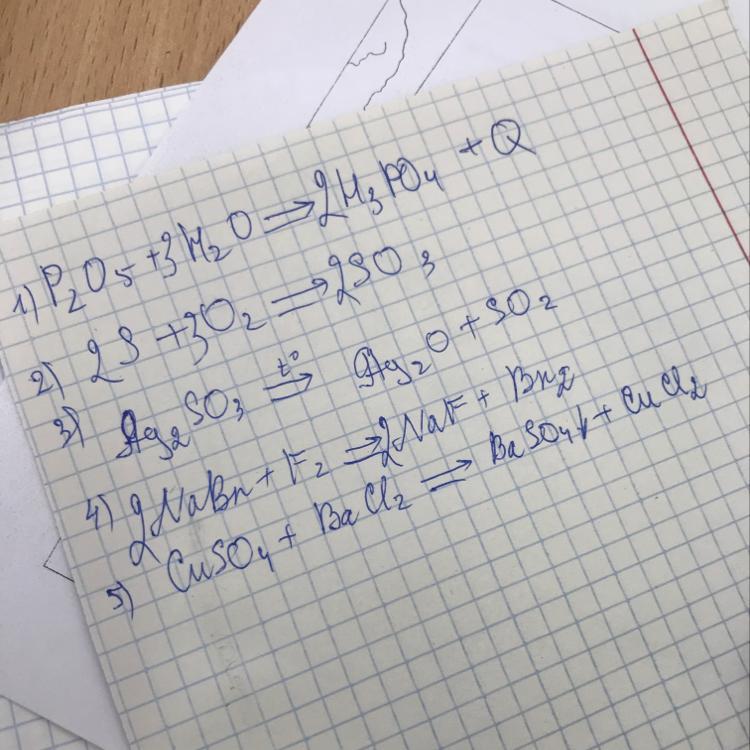 1) P₂O₅ + 3H₂O ⇒ 2H₃PO₄ + Q
2) 2S + 3O₂ ⇒ 2SO₃
3) Ag₂SO₃ t° ⇒ Ag₂O + SO₂
4) 2NaBr + F₂ ⇒ 2NaF + Br₂
5) CuSO₄ + BaCl₂ ⇒ BaSO₄↓ + CuCl₂